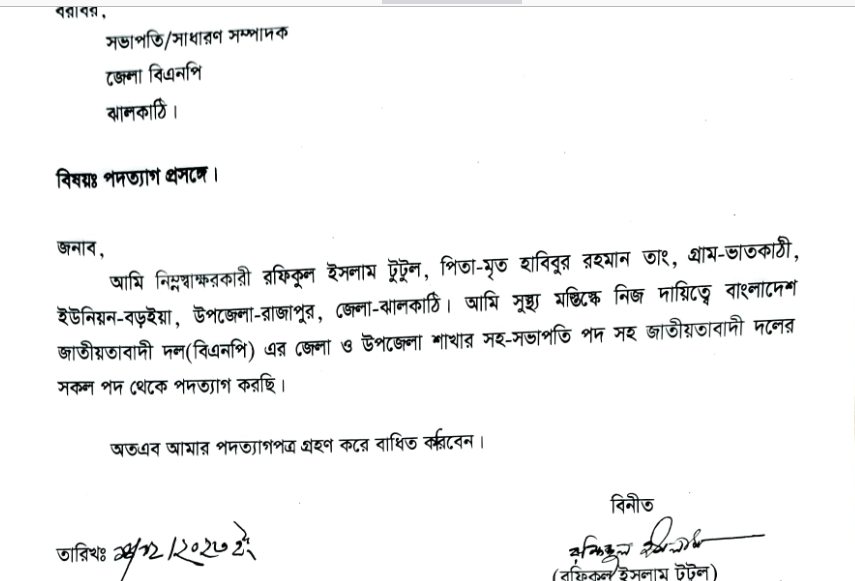 বরাবর,
সভাপতি/সাধারণ সম্পাদক
জেলা বিএনপি
ঝালকাঠি।
বিষয়ঃ পদত্যাগ প্রসঙ্গে।
জনাব,
আমি নিম্নস্বাক্ষরকারী রফিকুল ইসলাম টুটুল, পিতা-মৃত হাবিবুর রহমান তাং, গ্রাম-ভাতকাঠী,
ইউনিয়ন-বড়ইয়া, উপজেলা-রাজাপুর, জেলা-ঝালকাঠি। আমি সুস্থ্য মস্তিস্কে নিজ দায়িত্বে বাংলাদেশ
জাতীয়তাবাদী দল(বিএনপি) এর জেলা ও উপজেলা শাখার সহ-সভাপতি পদ সহ জাতীয়তাবাদী দলের
সকল পদ থেকে পদত্যাগ করছি।
অতএব আমার পদত্যাগপত্র গ্রহণ করে বাধিত করিবেন।
বিনীত
তারিখঃ
রফিকুল ইসলাম
(রফিকুল ইসলাম টুটুল)